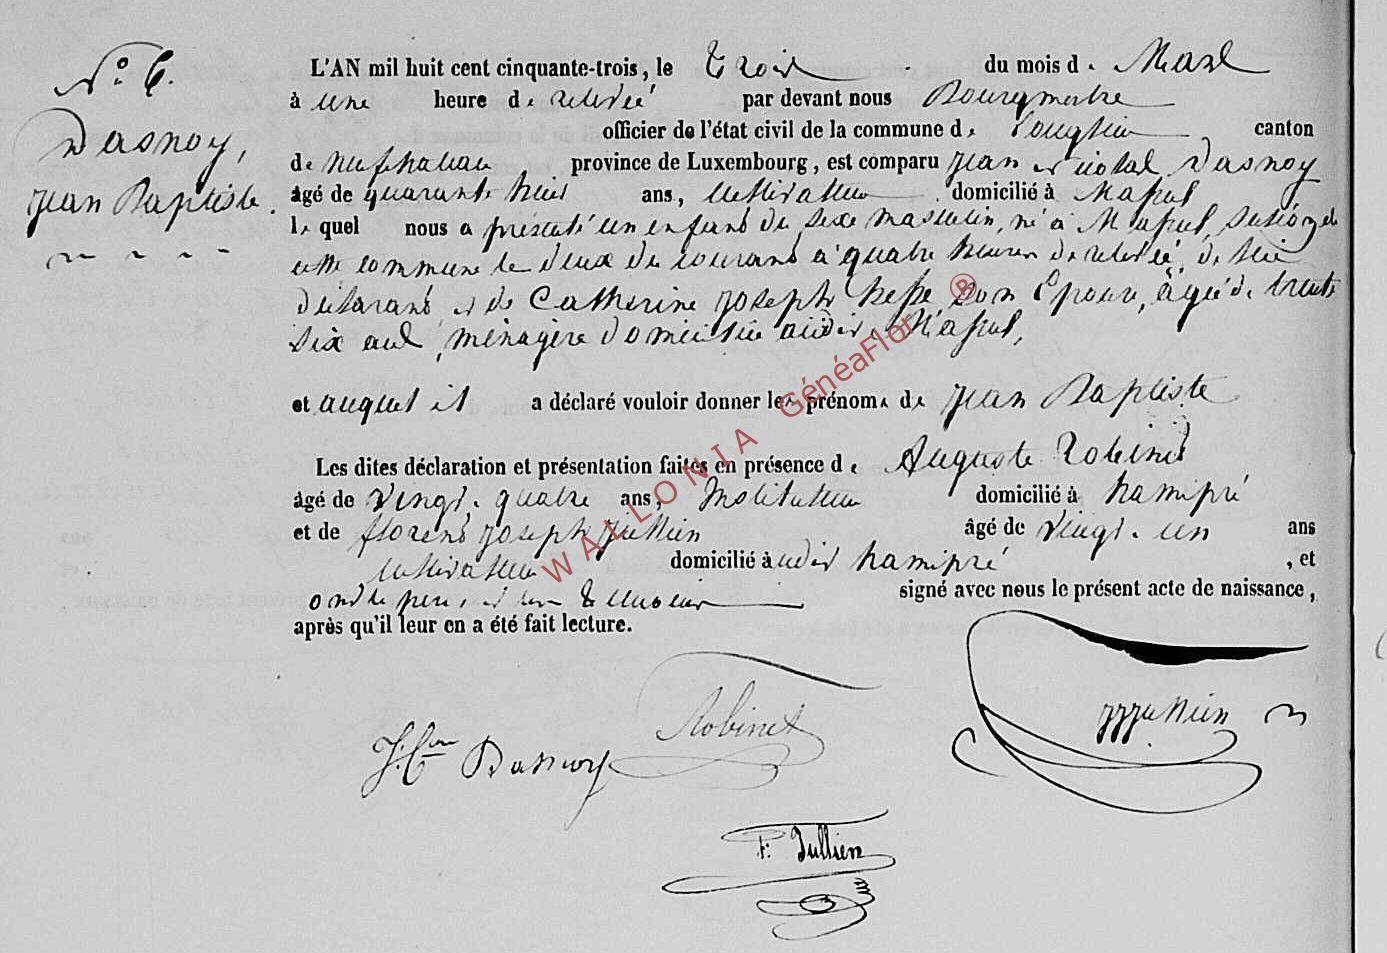 N° 6.
Dasnoy,
Jean Baptiste.
L'AN mil huit cent cinquante-trois, le Trois du mois de Mars
à une heure de relevée par devant nous Bourgmestre
officier de l'état civil de la commune de Longlier, canton
de Neufchateau province de Luxembourg, est comparu Jean Dasnoy
âgé de quarante huit ans, cultivateur domicilié à Massul
lequel nous a présenté un enfant du sexe masculin, né à Massul, section de
cette commune le deux du courant à quatre heures de relevée, de lui
déclarant et de Catherine Joseph son Epouse, âgée de trente
six ans, ménagère domiciliée audit Massul,
et auquel il a déclaré vouloir donner les prénoms de Jean Baptiste
Les dites déclaration et présentation faites en présence de Auguste Robinet
âgé de vingt-quatre ans, Instituteur domicilié à hamipré
et de florent Joseph Jullien âgé de vingt-un ans
cultivateur domicilié à udit hamipré, et
ont le père et les témoins signé avec nous le présent acte de naissance,
après qu'il leur en a été fait lecture.
Robinet
Jullien
J: Dasnoy
F: Jullien
WALLONIA GénéaFlor ®